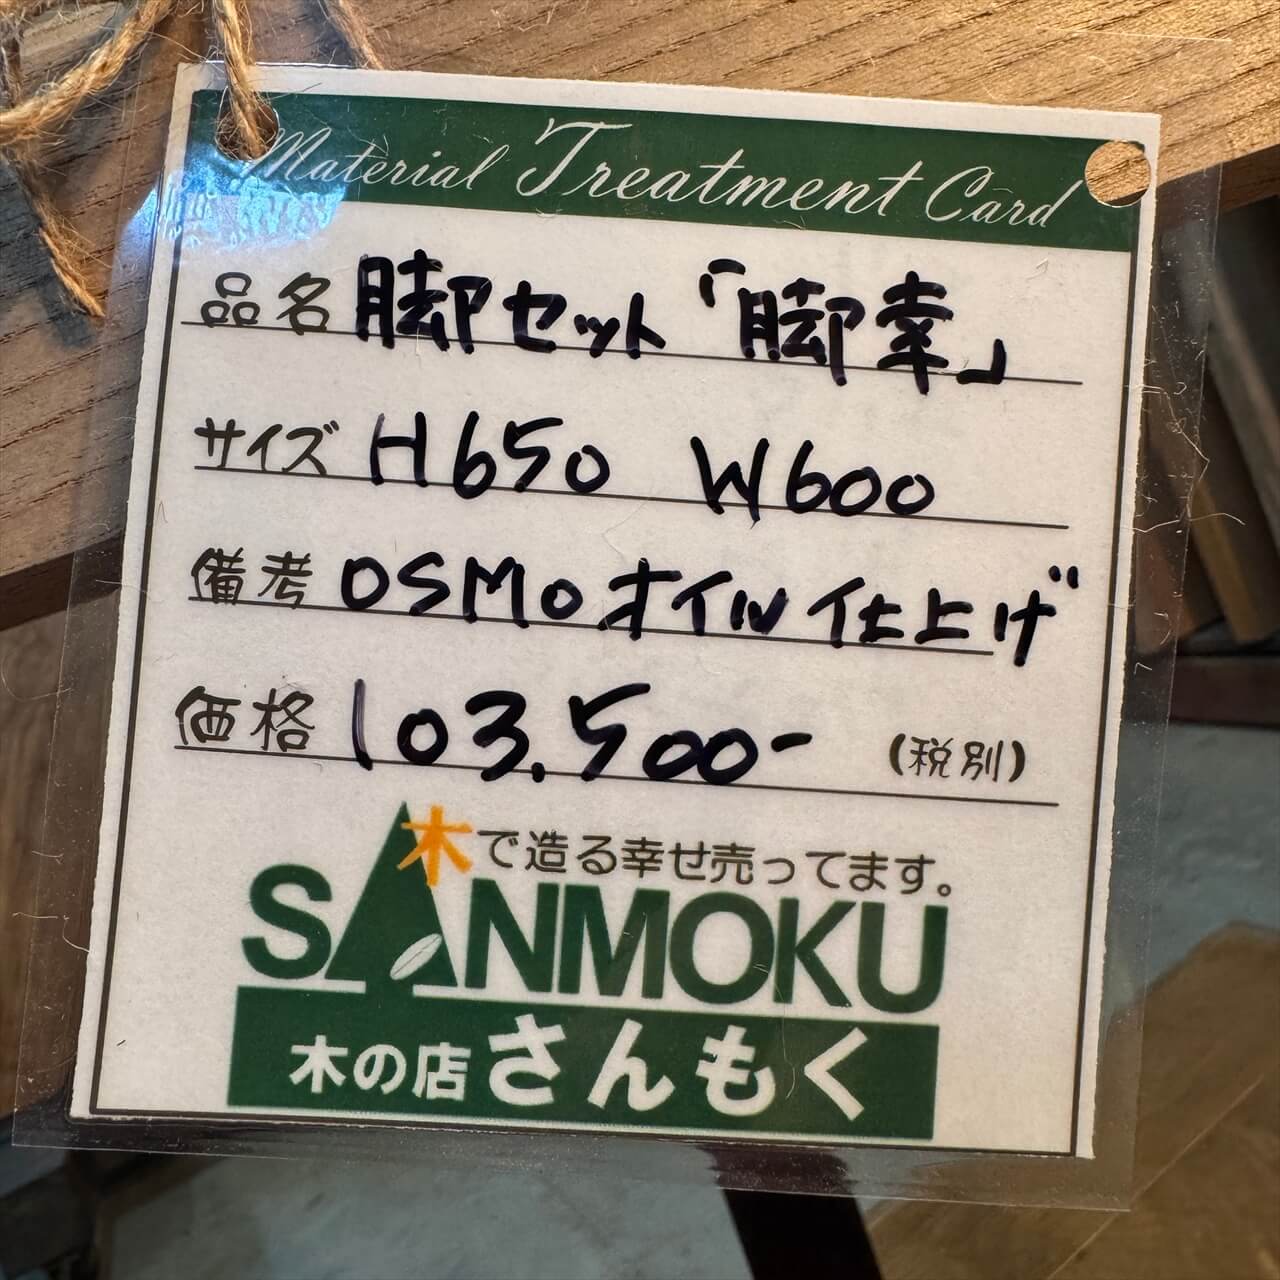 Material Treatment Card
品名 脚セット「脚幸」
サイズ H650 W600
備考 OSMOオイル仕上げ
価格 103,500- (税別)
木で造る幸せ売ってます。
SANMOKU
木の店さんもく